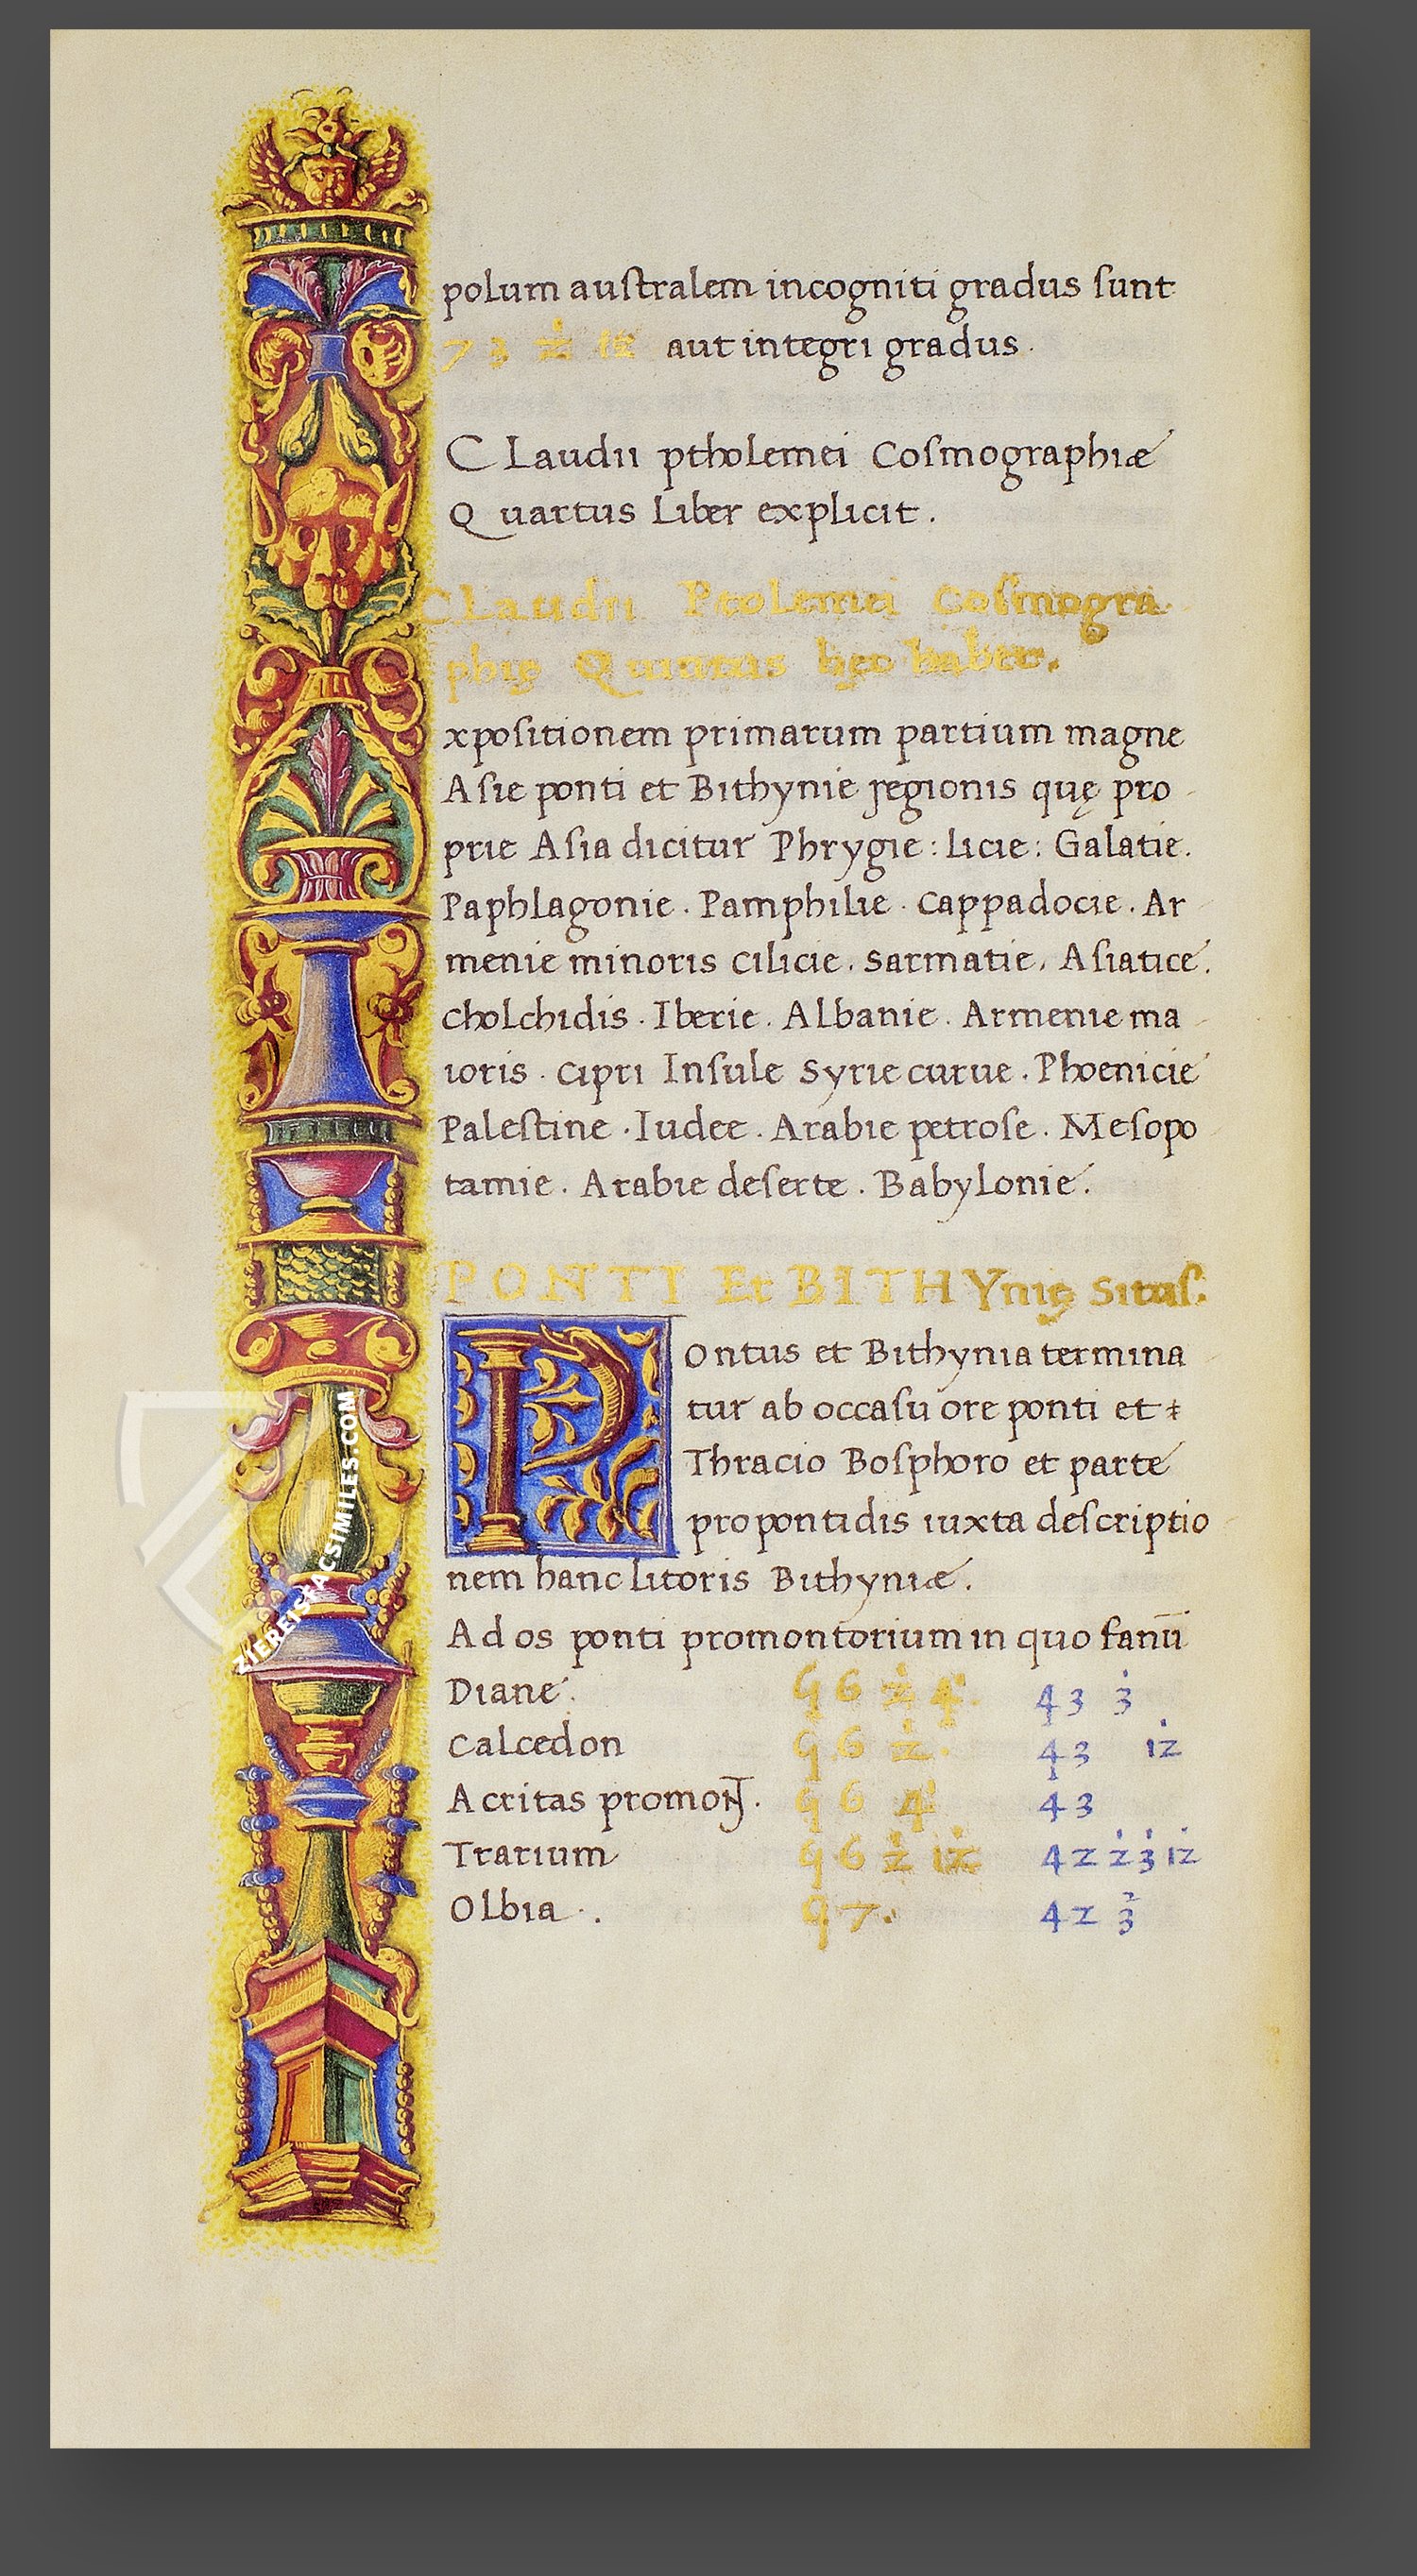 polum auſtralem incogniti gradus ſunt
73 ½ 12 aut integri gradus.
CLaudii ptholemei Coſmographiæ
Quartus Liber explicit.
CLaudii Ptolemei Coſmogra
phię Quintus hęc habet.
xpoſitionem primarum partium magne
Aſie ponti et Bithynie regionis quę pro
prie Aſia dicitur Phrygie: Licie: Galatie.
Paphlagonie. Pamphilie. Cappadocie. Ar
menie minoris Cilicie. Sarmatie. Aſiatice.
Cholchidis. Iberie. Albanie. Armenie ma
ioris. Cipri Inſule Syrie curue. Phoenicie
Paleſtine. Iudee. Arabie petroſe. Meſopo
tamie. Arabie deſerte. Babylonie.
PONTI Et BITHYnię Situſ.
Pontus et Bithynia termina
tur ab occaſu ore ponti et
Thracio Boſphoro et parte
propontidis iuxta deſcriptio
nem hanc litoris Bithyniæ.
Ad os ponti promontorium in quo fanū
Diane. 96 ½ 4. 43 3
Calcedon 96 ½. 43 12
Acritas promon͞. 96 4 43
Trarium 96 ½ 12 42 ½ 3 12
Olbia. 97. 42 ⅔
ZIEREIS FACSIMILES.COM